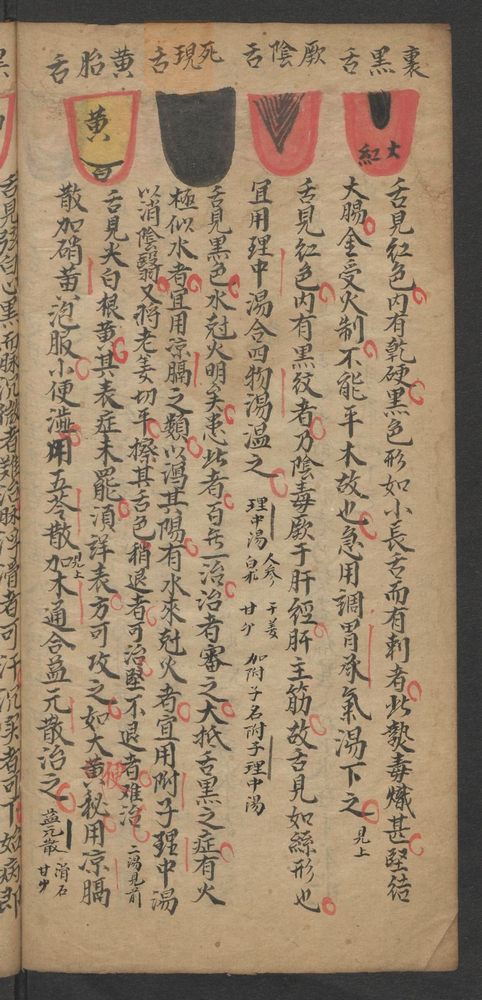 裏黑舌
大紅
舌見紅色內有乾硬黑色形如小長舌而有刺者此熱毒熾甚堅結
大腸金受火制不能平木故也急用調胃承氣湯下之 見上
厥陰舌
舌見紅色內有黑紋者乃陰毒厥于肝經肝主筋故舌見如絲形也
宜用理中湯合四物湯温之 理中湯 人參 干姜 白朮 甘少 加附子名附子理中湯
死現舌
舌見黑色水尅火明矣患此者百無一治治者審之大抵舌黑之症有火
極似水者宜用凉膈之類以瀉其陽有水來尅火者宜用附子理中湯
以消陰翳又將老姜切平擦其舌色稍退者可治堅不退者难治 二湯見前
黃胎舌
黃
白
舌見尖白根黃其表症未罷須詳表方可攻之如大便秘用凉膈
散加硝黃泡服小便澁用五苓散 見上 加木通合益元散治之 益元散 滑石 甘少
舌見 白心黑而脉沉微者難治脉浮滑者可汗沉实者可下始病即